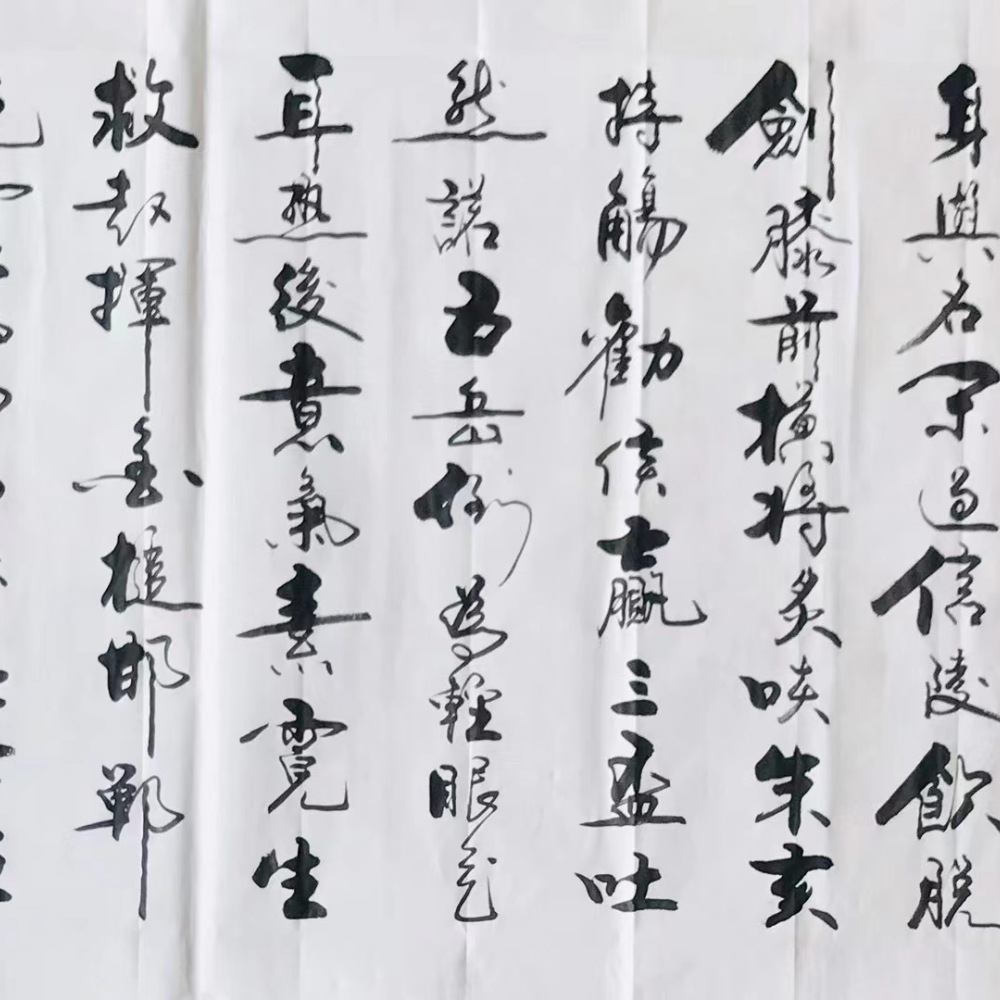 身與名閑過信陵飲脫
劍膝前橫將炙啖朱亥
持觴勸侯嬴三盃吐
然諾五岳倒為輕眼花
耳热後意氣素霓生
救趙揮金槌邯鄲